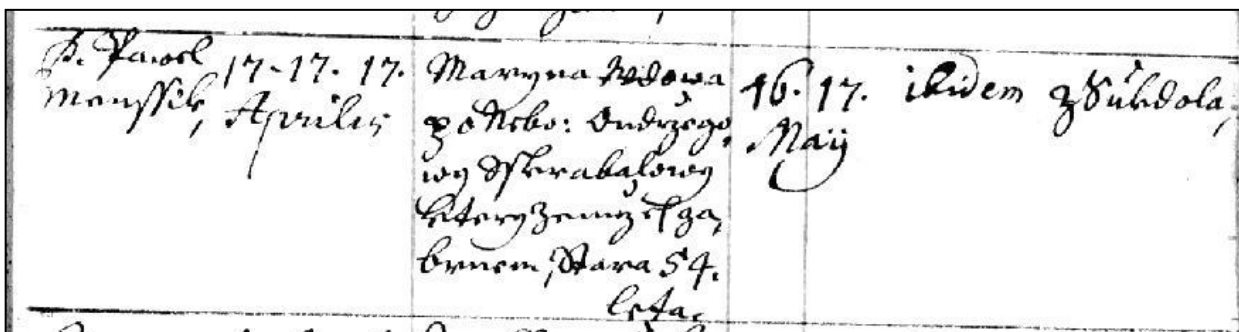 P. Pawel
Menssik,
17-17. 17.
Aprilis
Maryna Wdowa
po Nebo: Ondrzego
wy Sskrabalowy
ktery
Stara 54.
leta.
16. 17.
Maij
ibidem
z Suchdola,